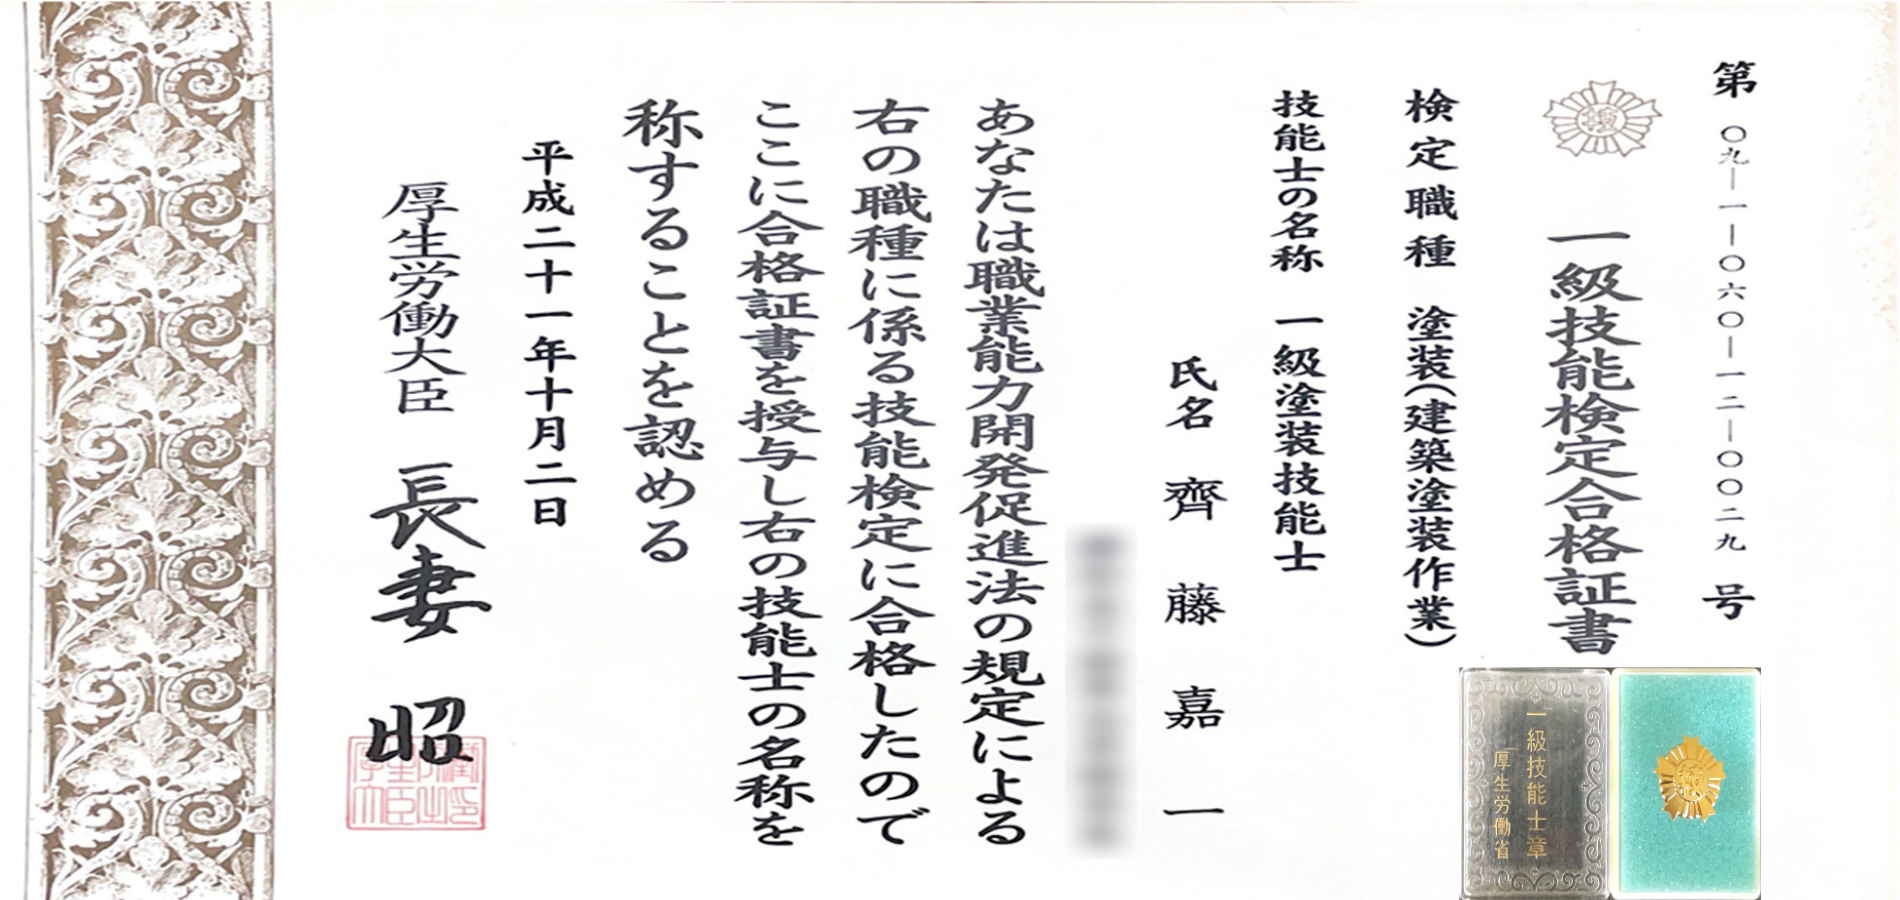 第〇九―一―一〇六〇―一二―〇〇二九号
技
一級技能検定合格証書
検定職種 塗装(建築塗装作業)
技能士の名称 一級塗装技能士
氏名 齊藤嘉一
あなたは職業能力開発促進法の規定による
右の職種に係る技能検定に合格したので
ここに合格証書を授与し右の技能士の名称を
称することを認める
平成二十一年十月二日
厚生労働大臣 長妻 昭
一級技能士章
厚生労働省